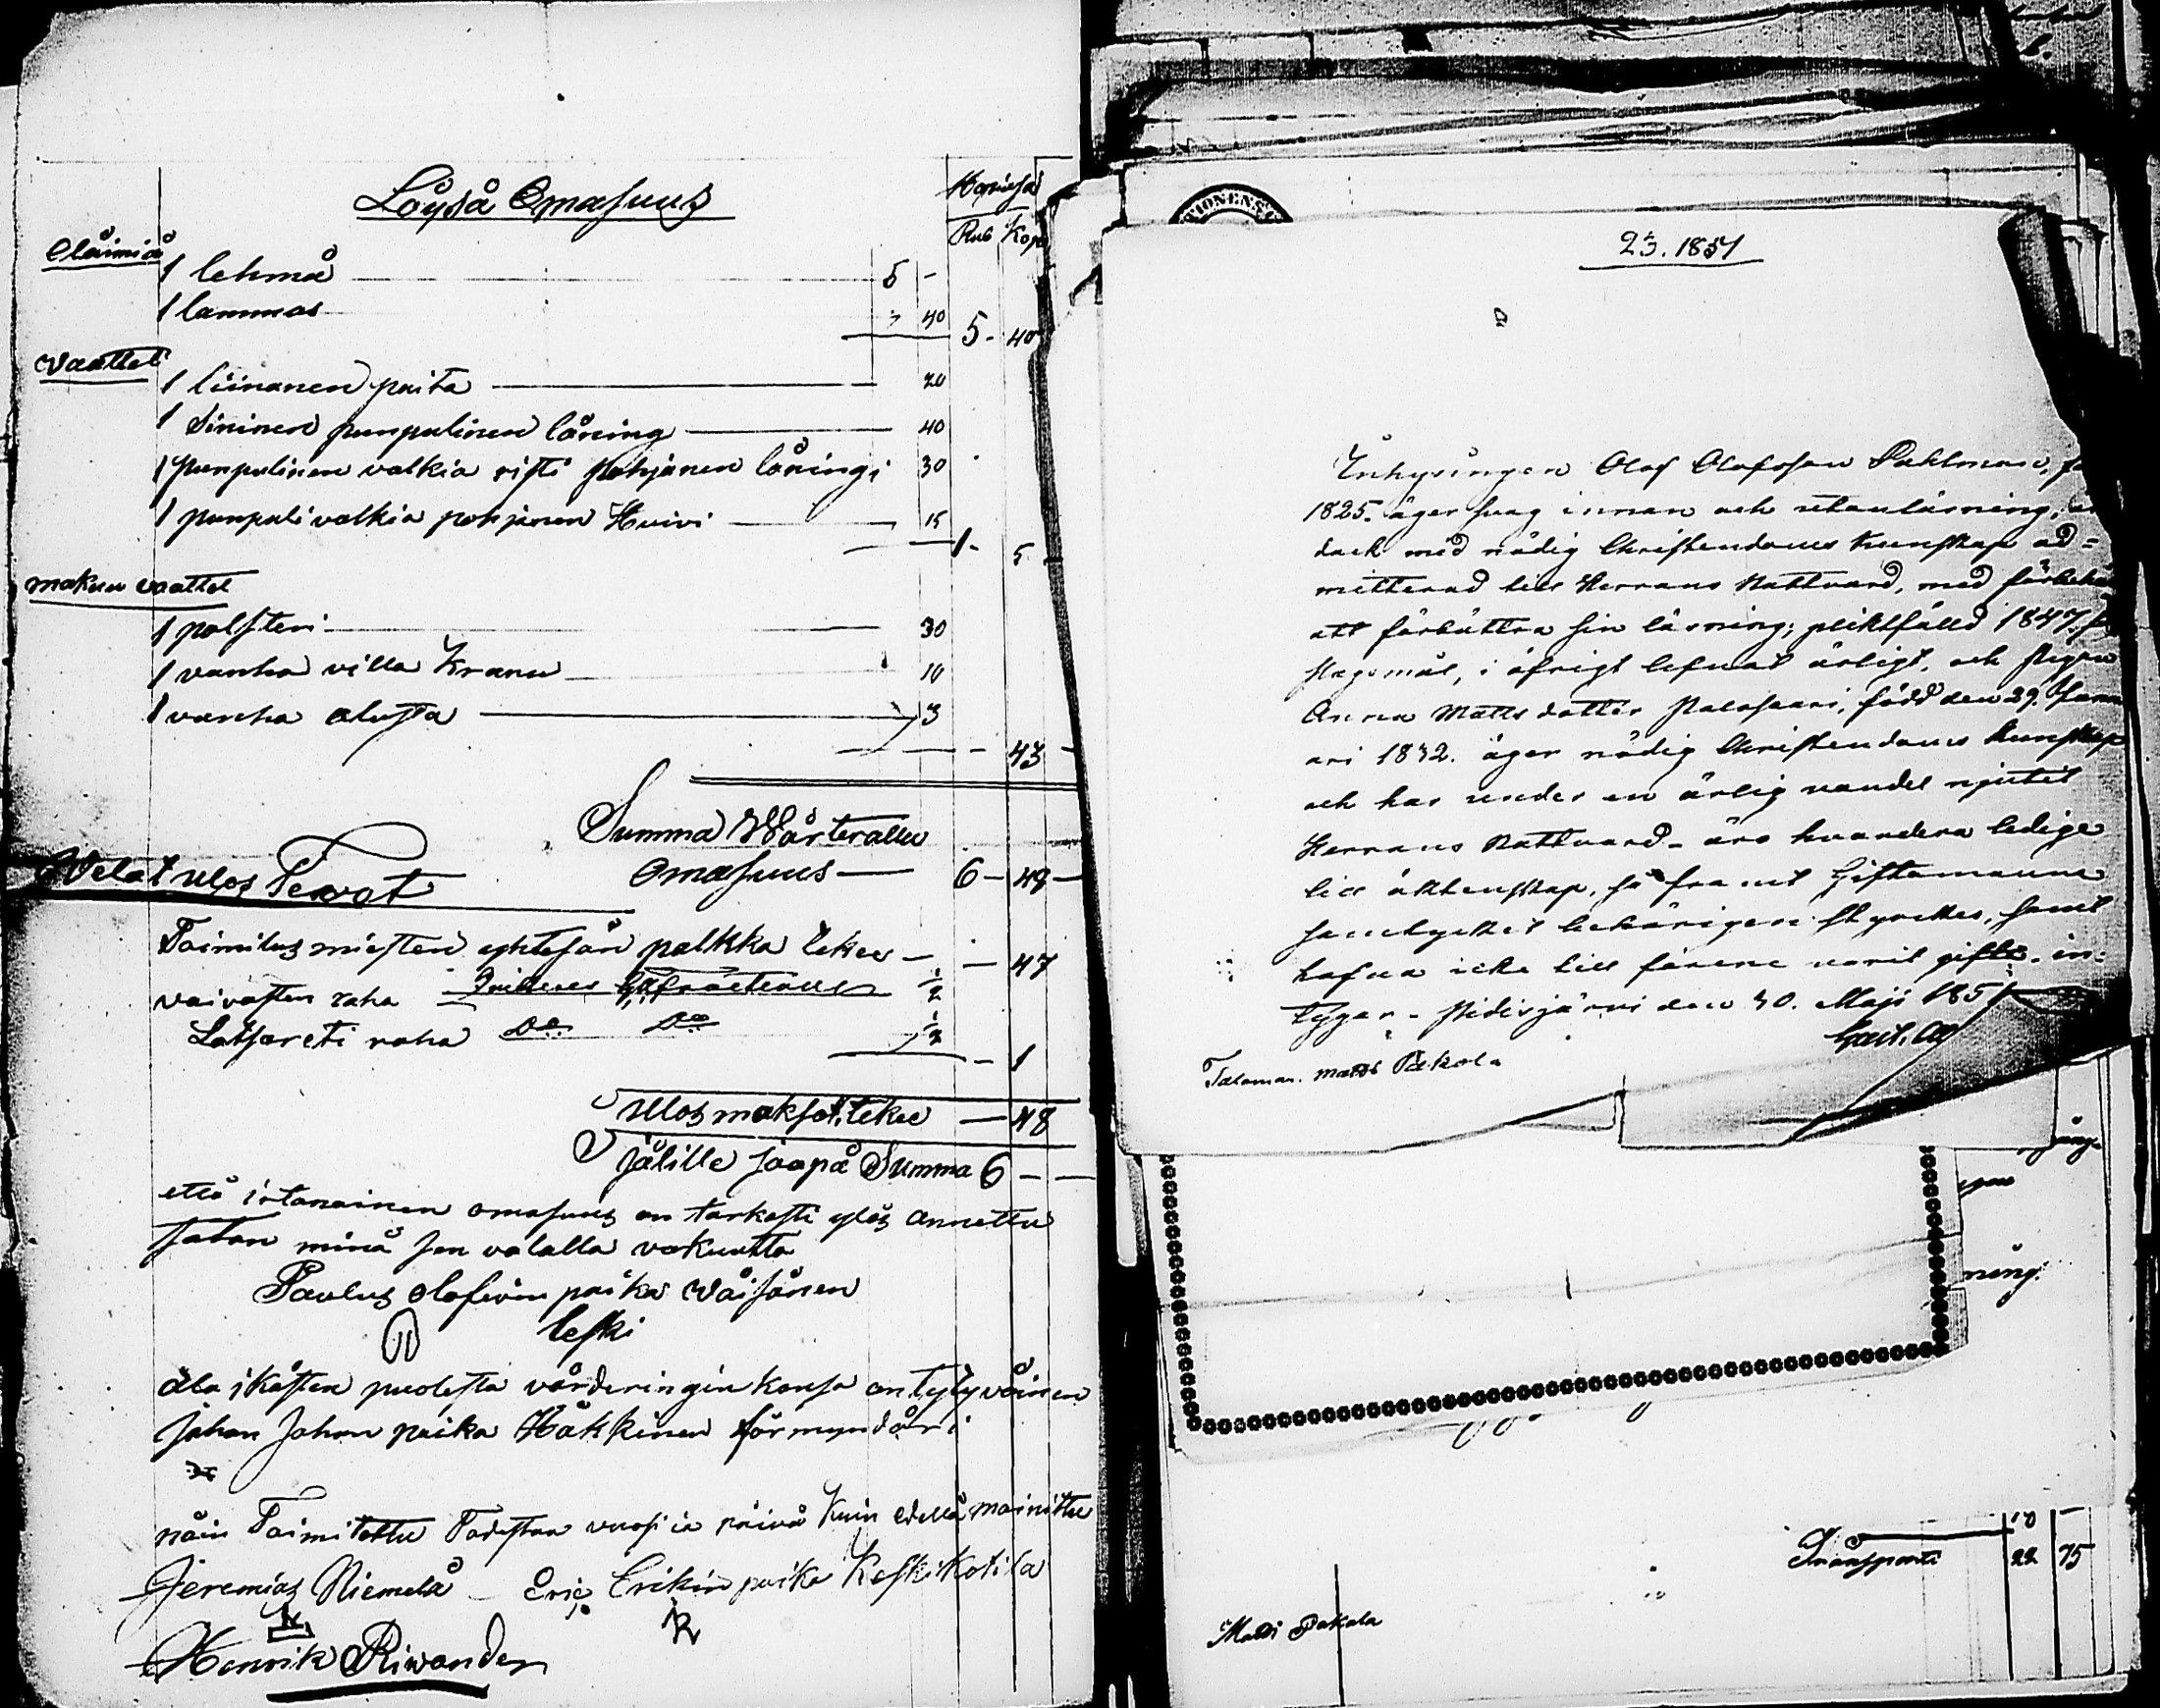 Löysä Omasuus
Hopiasa
Rub Kop
eläimiä
1 lehmä 5 -
1 lammas " 40 5 - 40
vaattet
1 liinanen paita 20
1 Sininen punpulinen löning 40
1 punpulinen valkia risti pohjanen löningi 30
1 punpuli valkia pohjanen Huivi 15
1 - 5
makuu vaattet
1 polsteri 30
1 vanha villa Kranu 10
1 vanha alusta 3
- 43
Summa Wärterattu
Omasuus 6 - 48
Velat ulos Tewot
Toimitus miesten yhtesän palkka tekee - 47
vaivasten raha ½
Latsareti raha Do Do ½
- 1
ulos maksot tekee - 48
jälille jääpä Summa 6 - -
että irtanainen omasuus on tarkasti ylös annettu
Satan minä sen valalla vakuutta
Paulus Olafivin paika Wäisänen
leski
ala ikästen puolesta värderingin kansa on tytyväinen
Johan Johan poika Häkkinen förmyndäri
näin Toimitettu Todistaa vuosi ia päivä kuin edellä mainittu
Jeremias Niemelä - Eric Erikin poika Keskikotila
Henrik Riwander
TIONENS
23. 1851
Inhysingen Olof Olofsson Pahlman,
1825. äger svag innan och utanläsning,
dock med nödig Christendoms Kunskap ad=
mitterad till Herrans Nattvard, med förbehå
att förbättra sin läsning; pliktfälld 1847
slagsmål, i öfrigt lefnat ärligt, och pigan
Anna Matts dotter Palosaari, född den 29. Janu
ari 1832. äger nödig Christendoms kunskap
och har under en ärlig vandel njutit
Herrans Nattvard - äro hvardera ledige
till äktenskap, så framt Giftomanna
samtycket behörigen styrkes, samt
hafva icke till förene varit gifte. in=
tygar. Pidisjärvi den 30. Maji 1851
Taloman. Matts Pakola
ning.
10 -
Transport 22 75
Matti Pakala